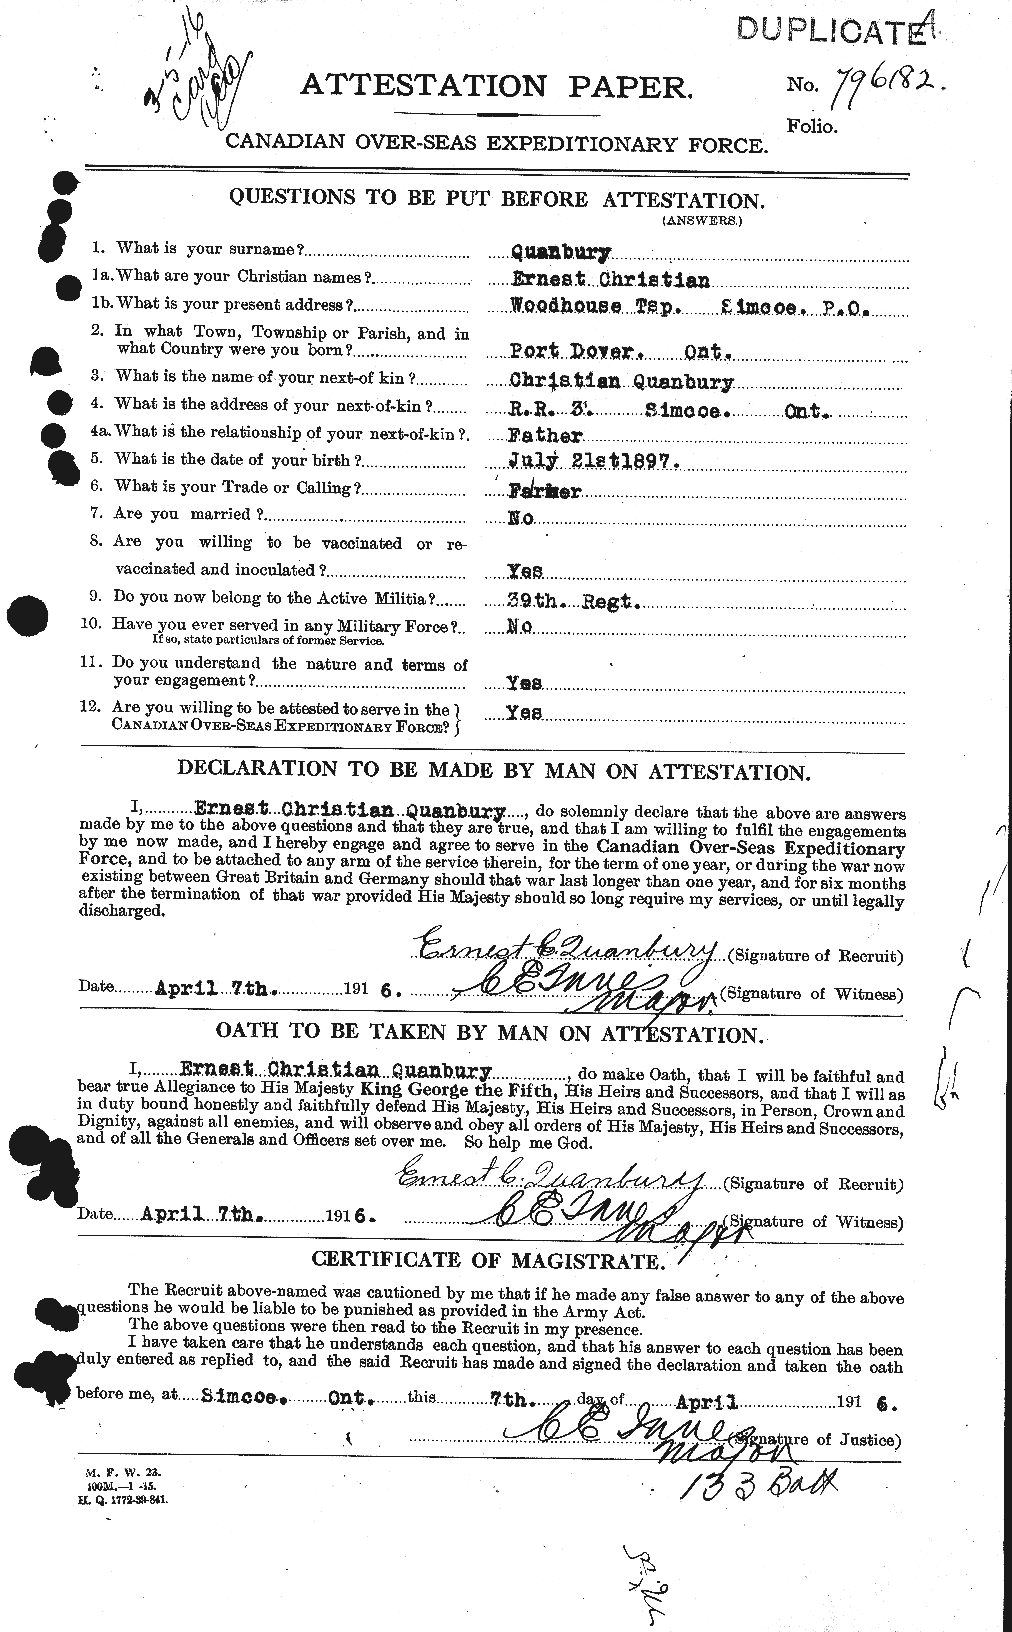 DUPLICATE A
3-5-16
Card
ATTESTATION PAPER.
No. 796182.
Folio.
CANADIAN OVER-SEAS EXPEDITIONARY FORCE.
QUESTIONS TO BE PUT BEFORE ATTESTATION.
(ANSWERS.)
1. What is your surname?..... Quanbury
1a. What are your Christian names?..... Ernest Christian
1b. What is your present address?..... Woodhouse Tsp. Simcoe. P.O.
2. In what Town, Township or Parish, and in
what Country were you born?..... Port Dover. Ont.
3. What is the name of your next-of kin?..... Christian Quanbury
4. What is the address of your next-of-kin?..... R.R. 3. Simcoe. Ont.
4a. What is the relationship of your next-of-kin?. Father
5. What is the date of your birth?..... July 21st1897.
6. What is your Trade or Calling?..... Farmer
7. Are you married?..... No
8. Are you willing to be vaccinated or re-
vaccinated and inoculated?..... Yes
9. Do you now belong to the Active Militia?..... 39th. Regt.
10. Have you ever served in any Military Force?.. No
If so, state particulars of former Service.
11. Do you understand the nature and terms of
your engagement?..... Yes
12. Are you willing to be attested to serve in the
CANADIAN OVER-SEAS EXPEDITIONARY FORCE? Yes
DECLARATION TO BE MADE BY MAN ON ATTESTATION.
I, Ernest Christian Quanbury, do solemnly declare that the above are answers
made by me to the above questions and that they are true, and that I am willing to fulfil the engagements
by me now made, and I hereby engage and agree to serve in the Canadian Over-Seas Expeditionary
Force, and to be attached to any arm of the service therein, for the term of one year, or during the war now
existing between Great Britain and Germany should that war last longer than one year, and for six months
after the termination of that war provided His Majesty should so long require my services, or until legally
discharged.
Ernest C. Quanbury (Signature of Recruit)
Date April 7th. 191 6. C E Innes Major. (Signature of Witness)
OATH TO BE TAKEN BY MAN ON ATTESTATION.
I, Ernest Christian Quanbury, do make Oath, that I will be faithful and
bear true Allegiance to His Majesty King George the Fifth, His Heirs and Successors, and that I will as
in duty bound honestly and faithfully defend His Majesty, His Heirs and Successors, in Person, Crown and
Dignity, against all enemies, and will observe and obey all orders of His Majesty, His Heirs and Successors,
and of all the Generals and Officers set over me. So help me God.
Ernest C. Quanbury (Signature of Recruit)
Date April 7th. 191 6. C E Innes Major (Signature of Witness)
CERTIFICATE OF MAGISTRATE.
The Recruit above-named was cautioned by me that if he made any false answer to any of the above
questions he would be liable to be punished as provided in the Army Act.
The above questions were then read to the Recruit in my presence.
I have taken care that he understands each question, and that his answer to each question has been
duly entered as replied to, and the said Recruit has made and signed the declaration and taken the oath
before me, at Simcoe. Ont. this 7th. day of April 191 6.
C E Innes Major (Signature of Justice)
133 Batt
M. F. W. 23.
100M.—1-15.
H. Q. 1772-39-841.